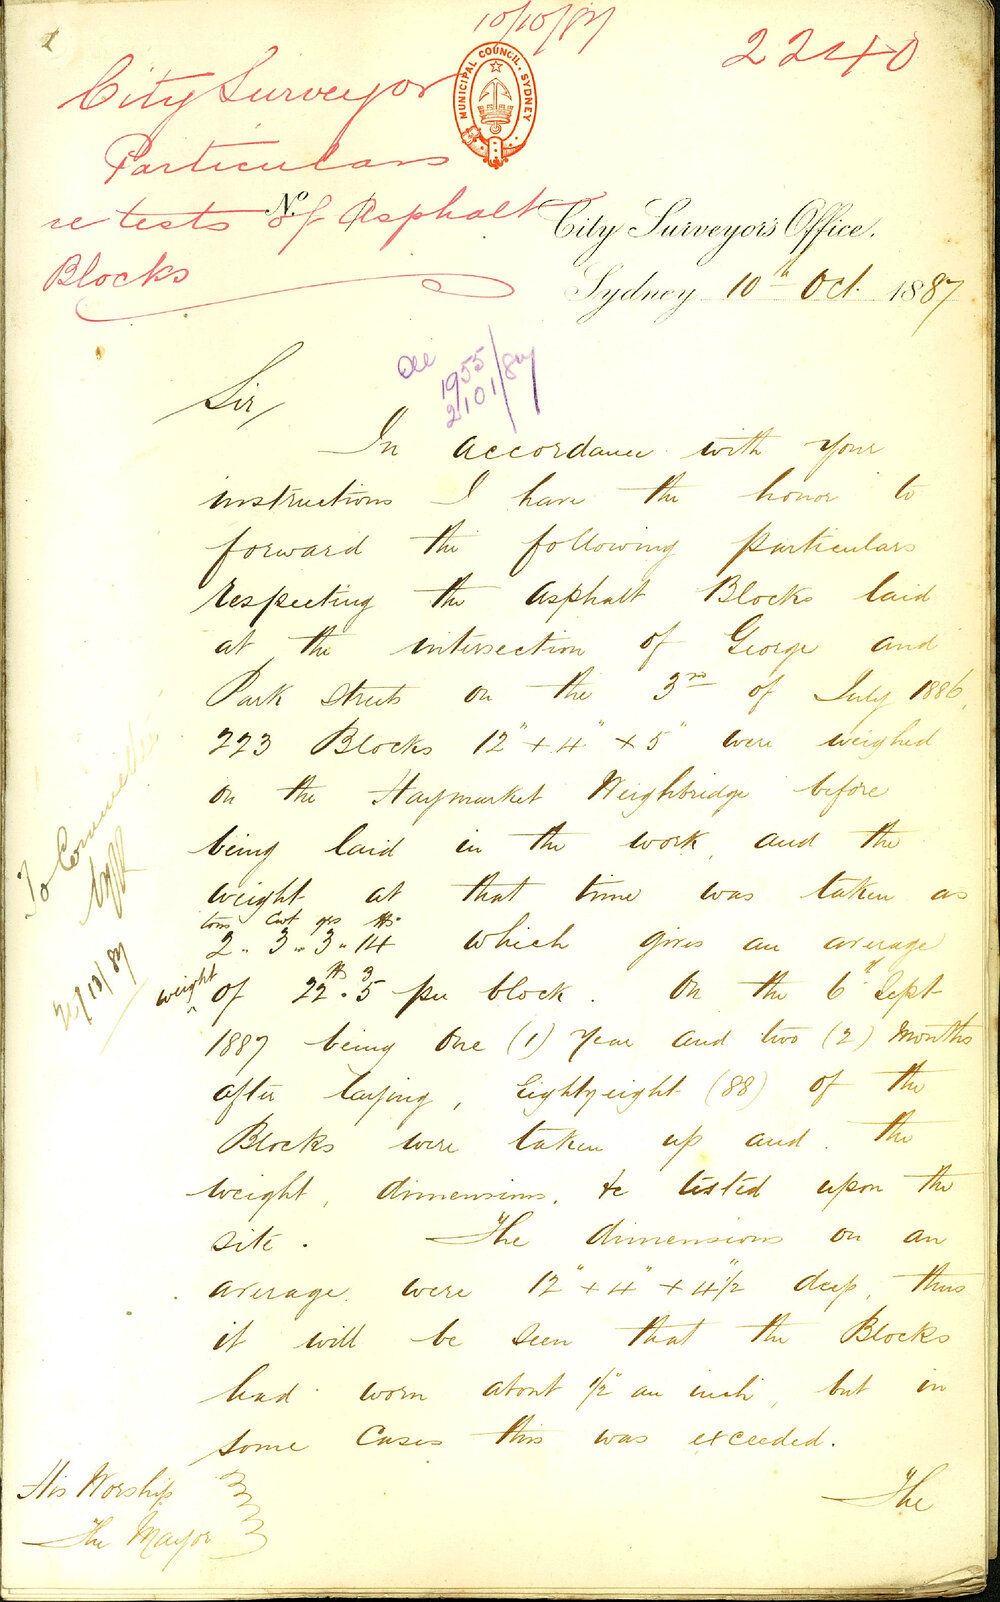 1
10/10/87
2240
City Surveyor
Particulars
re tests of Asphalt
Blocks
MUNICIPAL COUNCIL. SYDNEY
No.
City Surveyor's Office.
Sydney 10th Oct. 1887
1955
2101/87
Sir,
In accordance with your
instructions I have the honor to
forward the following particulars
respecting the Asphalt Blocks laid
at the intersection of George and
Park streets on the 3rd of July 1886,
223 Blocks 12" + 4" + 5" were weighed
on the Haymarket Weighbridge before
being laid in the work, and the
weight at that time was taken as
tons cwt qrs lbs
2 .. 3 .. 3 .. 14 which gives an average
weight of 22 lbs . 3 5 per block. On the 6th Sept
1887 being One (1) Year and two (2) Months
after laying, Eightyeight (88) of the
Blocks were taken up and the
weight, dimensions, &c tested upon the
site. The dimensions on an
average were 12" + 4" + 4"1/2 deep, thus
it will be seen that the Blocks
had worn about 1/2" an inch, but in
some cases this was exceeded.
The
His Worship
The Mayor
To Committee
13/87